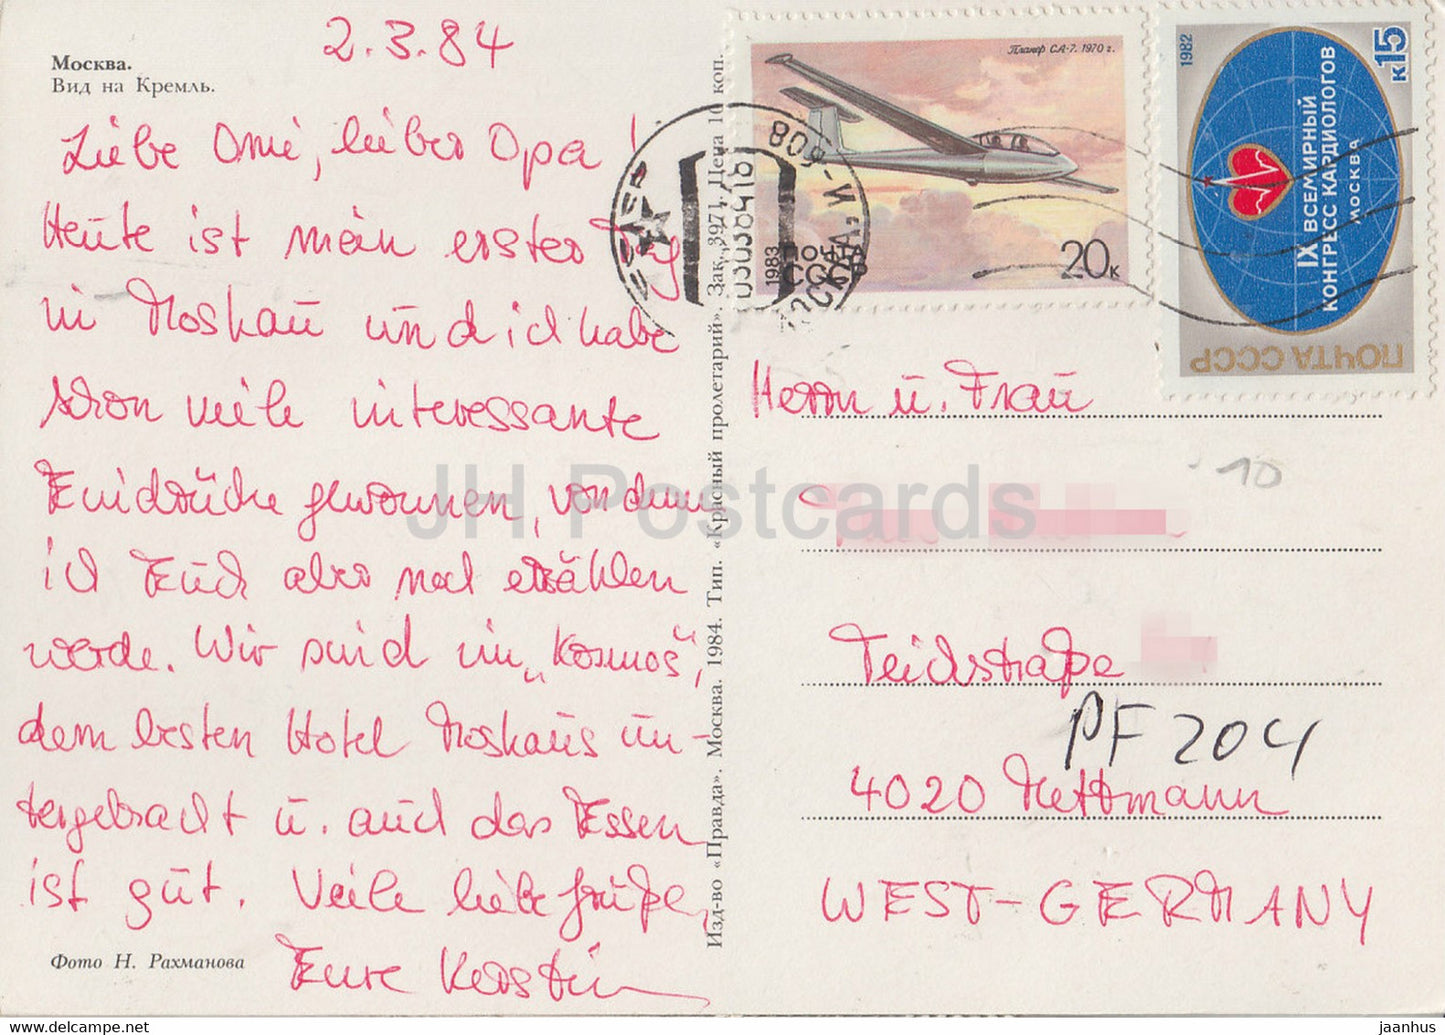 Москва.
Вид на Кремль.
2.3.84
Liebe Omi, lieber Opa!
Heute ist mein erster Tag
in Moskau und ich habe
schon viele interessante
Eindrücke gewonnen, von denen
ich Euch aber noch erzählen
werde. Wir sind im „Kosmos“,
dem besten Hotel Moskaus un-
tergebracht u. auch das Essen
ist gut. Viele liebe Grüße,
Eure Kerstin
Фото Н. Рахманова
Изд-во «Правда». Москва. 1984. Тип. «Красный пролетарий». Зак. 3971. Цена 10 коп.
Планер СА-7. 1970 г.
20к
1983
ПОЧТА
СССР
1982
к15
IX ВСЕМИРНЫЙ
КОНГРЕСС КАРДИОЛОГОВ
МОСКВА
ПОЧТА СССР
Herrn u. Frau
10
Teichstraße
PF 204
4020 Mettmann
WEST-GERMANY
JH Postcards
www.delcampe.net
jaanhus